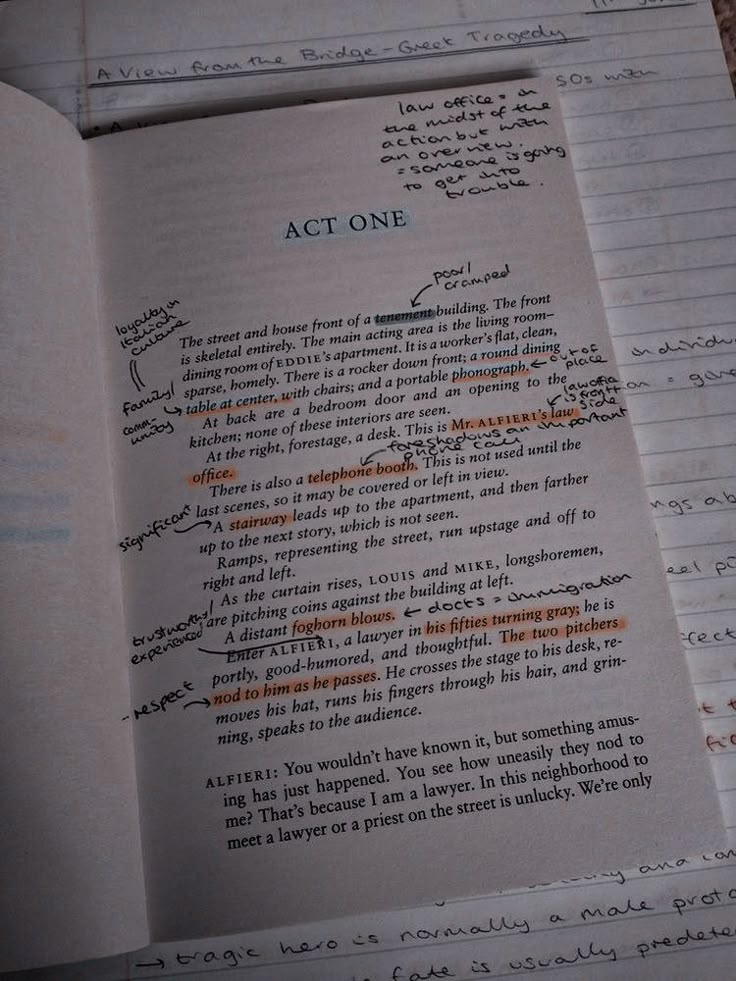 A View from the Bridge - Greek Tragedy
50s with
law office = in
the midst of the
action but with
an overview.
= someone is going
to get into
trouble.
ACT ONE
poor/
cramped
loyalty in
Italian
culture
The street and house front of a tenement building. The front
is skeletal entirely. The main acting area is the living room–
dining room of EDDIE's apartment. It is a worker's flat, clean,
sparse, homely. There is a rocker down front; a round dining
table at center, with chairs; and a portable phonograph.
out of
place
family/
comm-
unity
At back are a bedroom door and an opening to the
kitchen; none of these interiors are seen.
law office
is front
side
At the right, forestage, a desk. This is Mr. ALFIERI's law
office.
foreshadows an important
phone call
There is also a telephone booth. This is not used until the
last scenes, so it may be covered or left in view.
significant
A stairway leads up to the apartment, and then farther
up to the next story, which is not seen.
Ramps, representing the street, run upstage and off to
right and left.
As the curtain rises, LOUIS and MIKE, longshoremen,
are pitching coins against the building at left.
A distant foghorn blows.
docks = immigration
trustworthy/
experienced
Enter ALFIERI, a lawyer in his fifties turning gray; he is
portly, good-humored, and thoughtful. The two pitchers
nod to him as he passes. He crosses the stage to his desk, re-
moves his hat, runs his fingers through his hair, and grin-
ning, speaks to the audience.
- respect
ALFIERI: You wouldn't have known it, but something amus-
ing has just happened. You see how uneasily they nod to
me? That's because I am a lawyer. In this neighborhood to
meet a lawyer or a priest on the street is unlucky. We're only
individu
ngs ab
eel p
fect
and con
→ tragic hero is normally a male prot
fate is usually predete